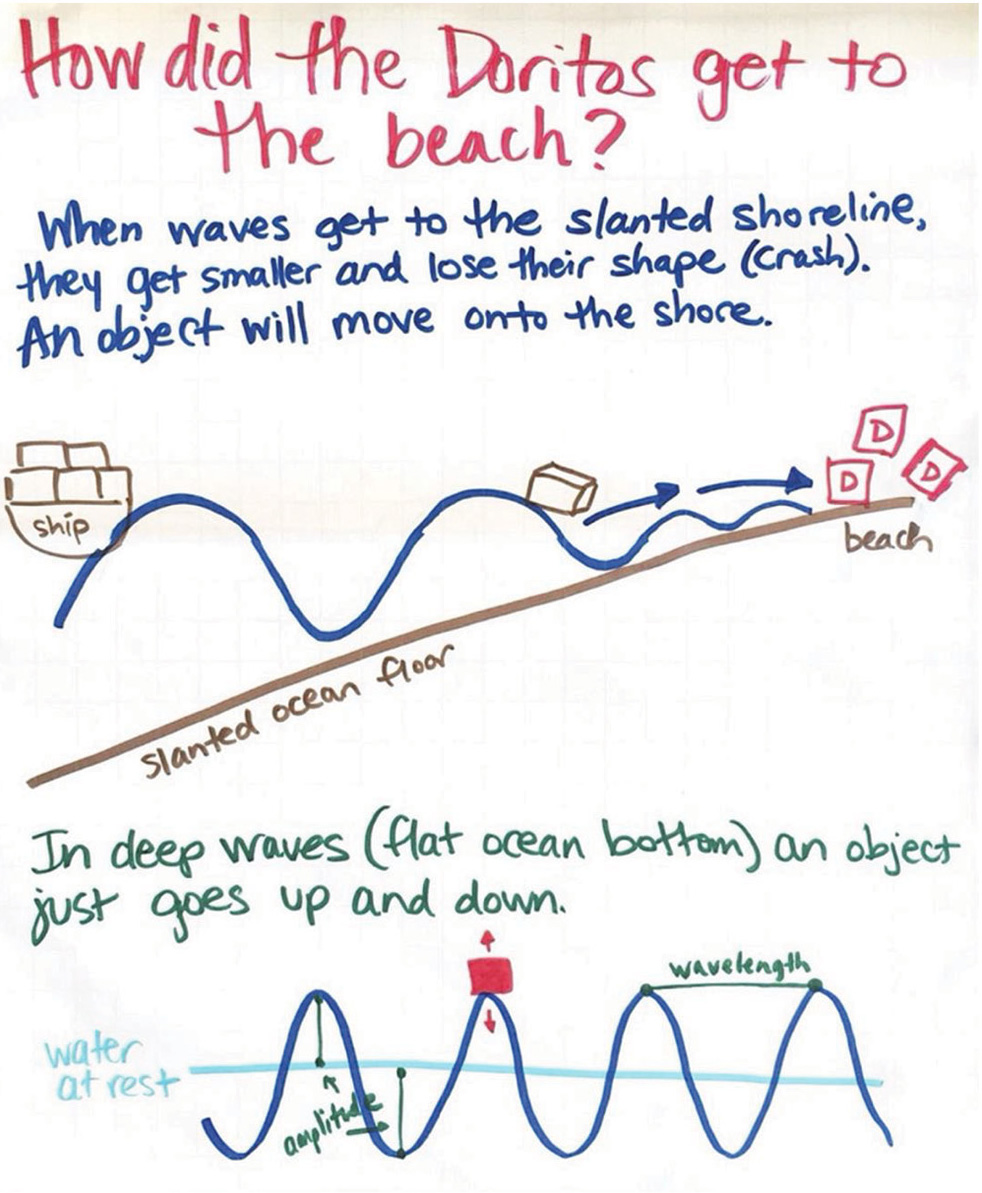 How did the Doritos get to
the beach?
When waves get to the slanted shoreline,
they get smaller and lose their shape (crash).
An object will move onto the shore.
ship
D
D
D
beach
slanted ocean floor
In deep waves (flat ocean bottom) an object
just goes up and down.
wavelength
water
at rest
amplitude